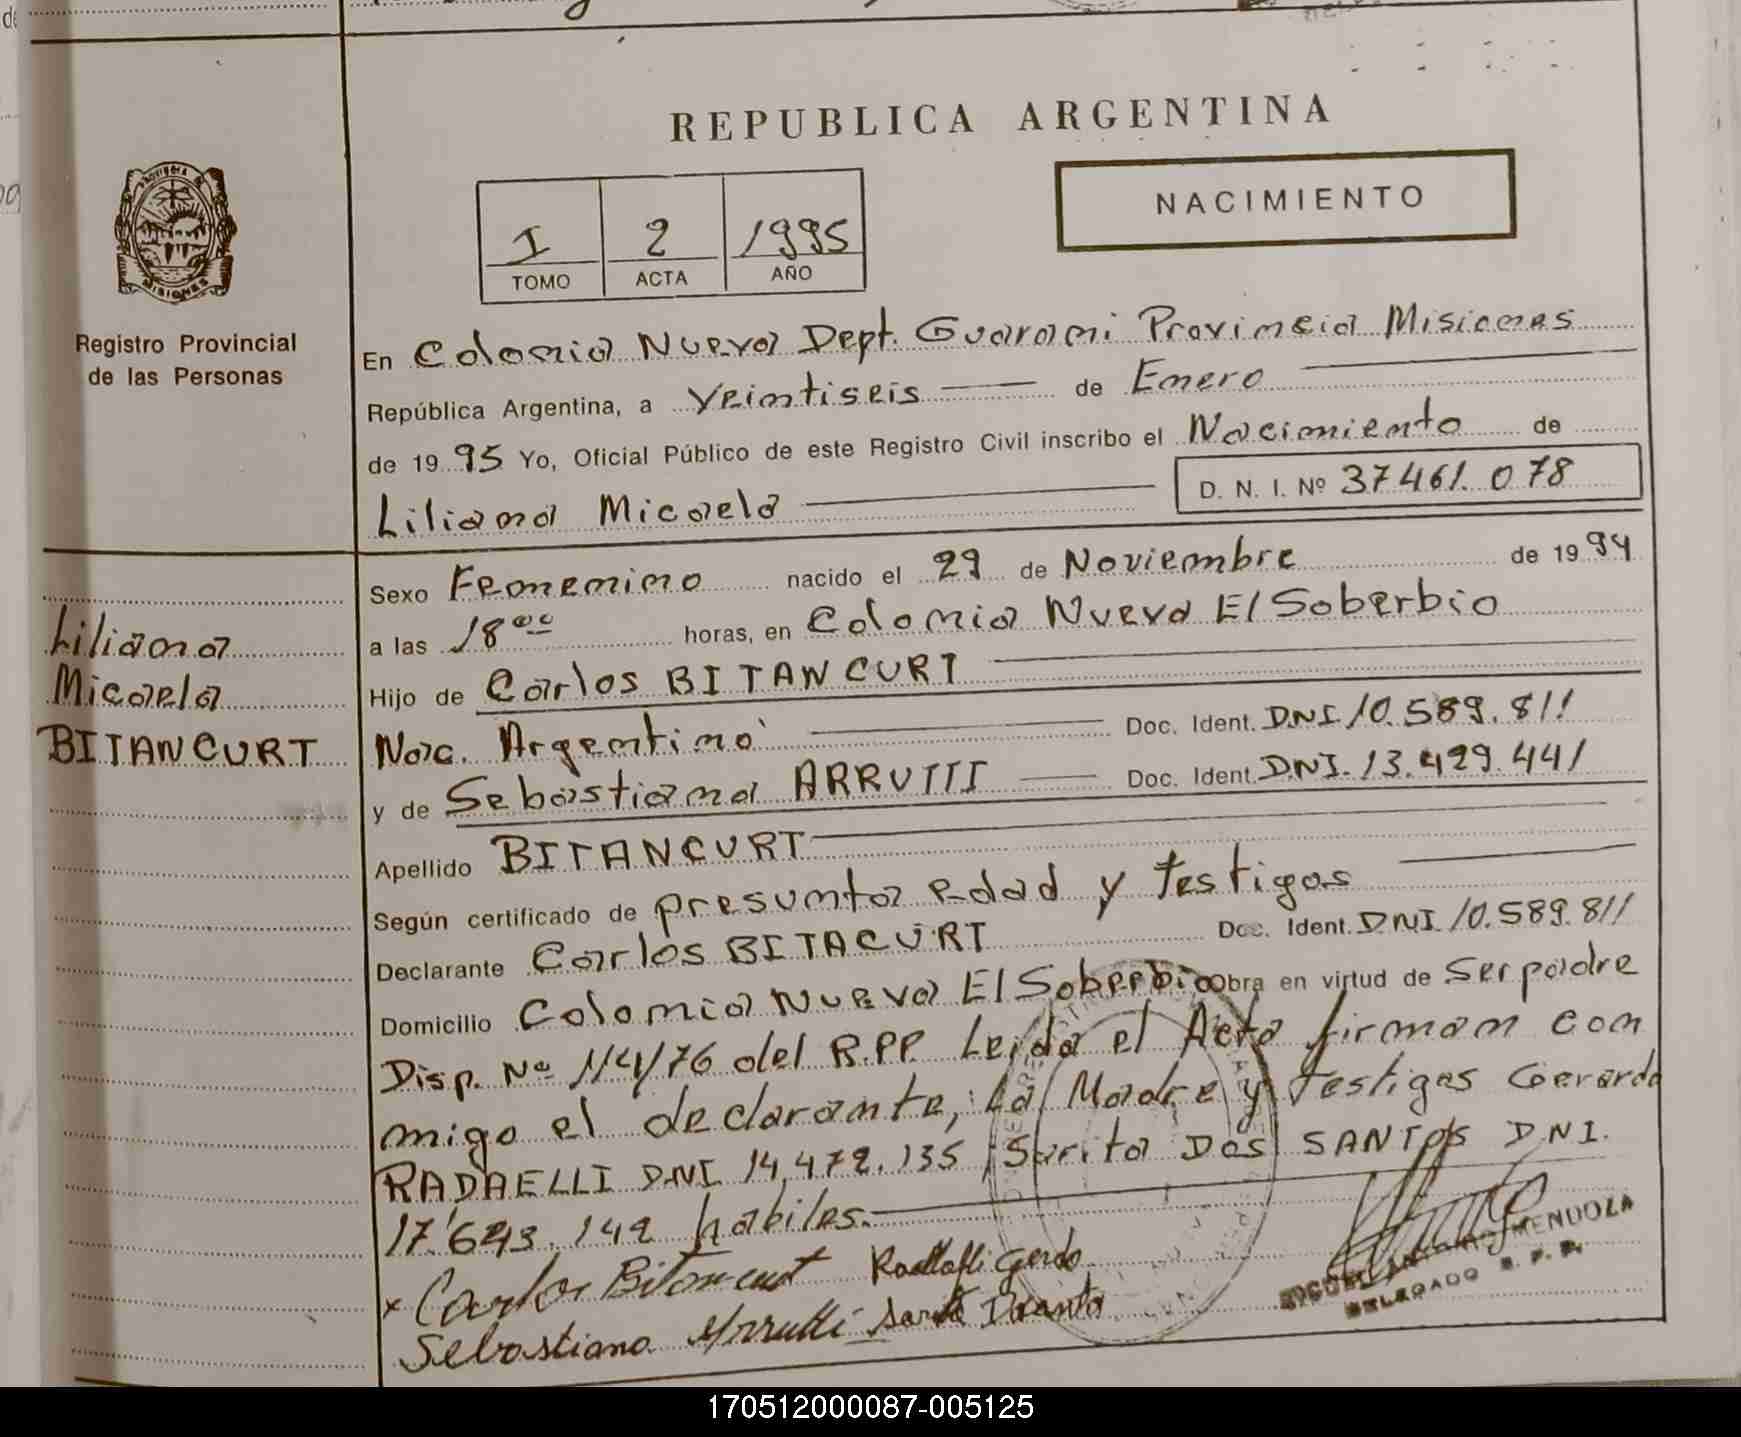 REPUBLICA ARGENTINA
NACIMIENTO
I 2 1995
TOMO ACTA AÑO
PROVINCIA DE MISIONES
Registro Provincial
de las Personas
En Colonia Nueva Dept. Guarani Provincia Misiones
República Argentina, a Veintiseis de Enero
de 1995 Yo, Oficial Público de este Registro Civil inscribo el Nacimiento de
Liliana Micaela D. N. I. Nº 37461.078
Sexo Femenino nacido el 29 de Noviembre de 1994
a las 18 00 horas, en Colonia Nueva El Soberbio
Liliana
Micaela
BITANCURT
Hijo de Carlos BITANCURT
Nac. Argentino Doc. Ident. DNI 10.589.811
y de Sebastiana ARRUTTI Doc. Ident. DNI. 13.429.441
Apellido BITANCURT
Según certificado de presunta edad y testigos
Declarante Carlos BITACURT Doc. Ident. DNI 10.589.811
Domicilio Colonia Nueva El Soberbio Obra en virtud de Ser padre
Disp. Nº 114/76 del R.P.P. Leida el Acta firman con
migo el declarante, La Madre y testigos Gerardo
RADAELLI DNI 14,472.135 Sarita Dos SANTOS DNI.
17.643.142 habiles.
x Carlos Bitancurt
Sebastiana Arrutti
MENDOZA
DELEGADO R. P. P.
170512000087-005125